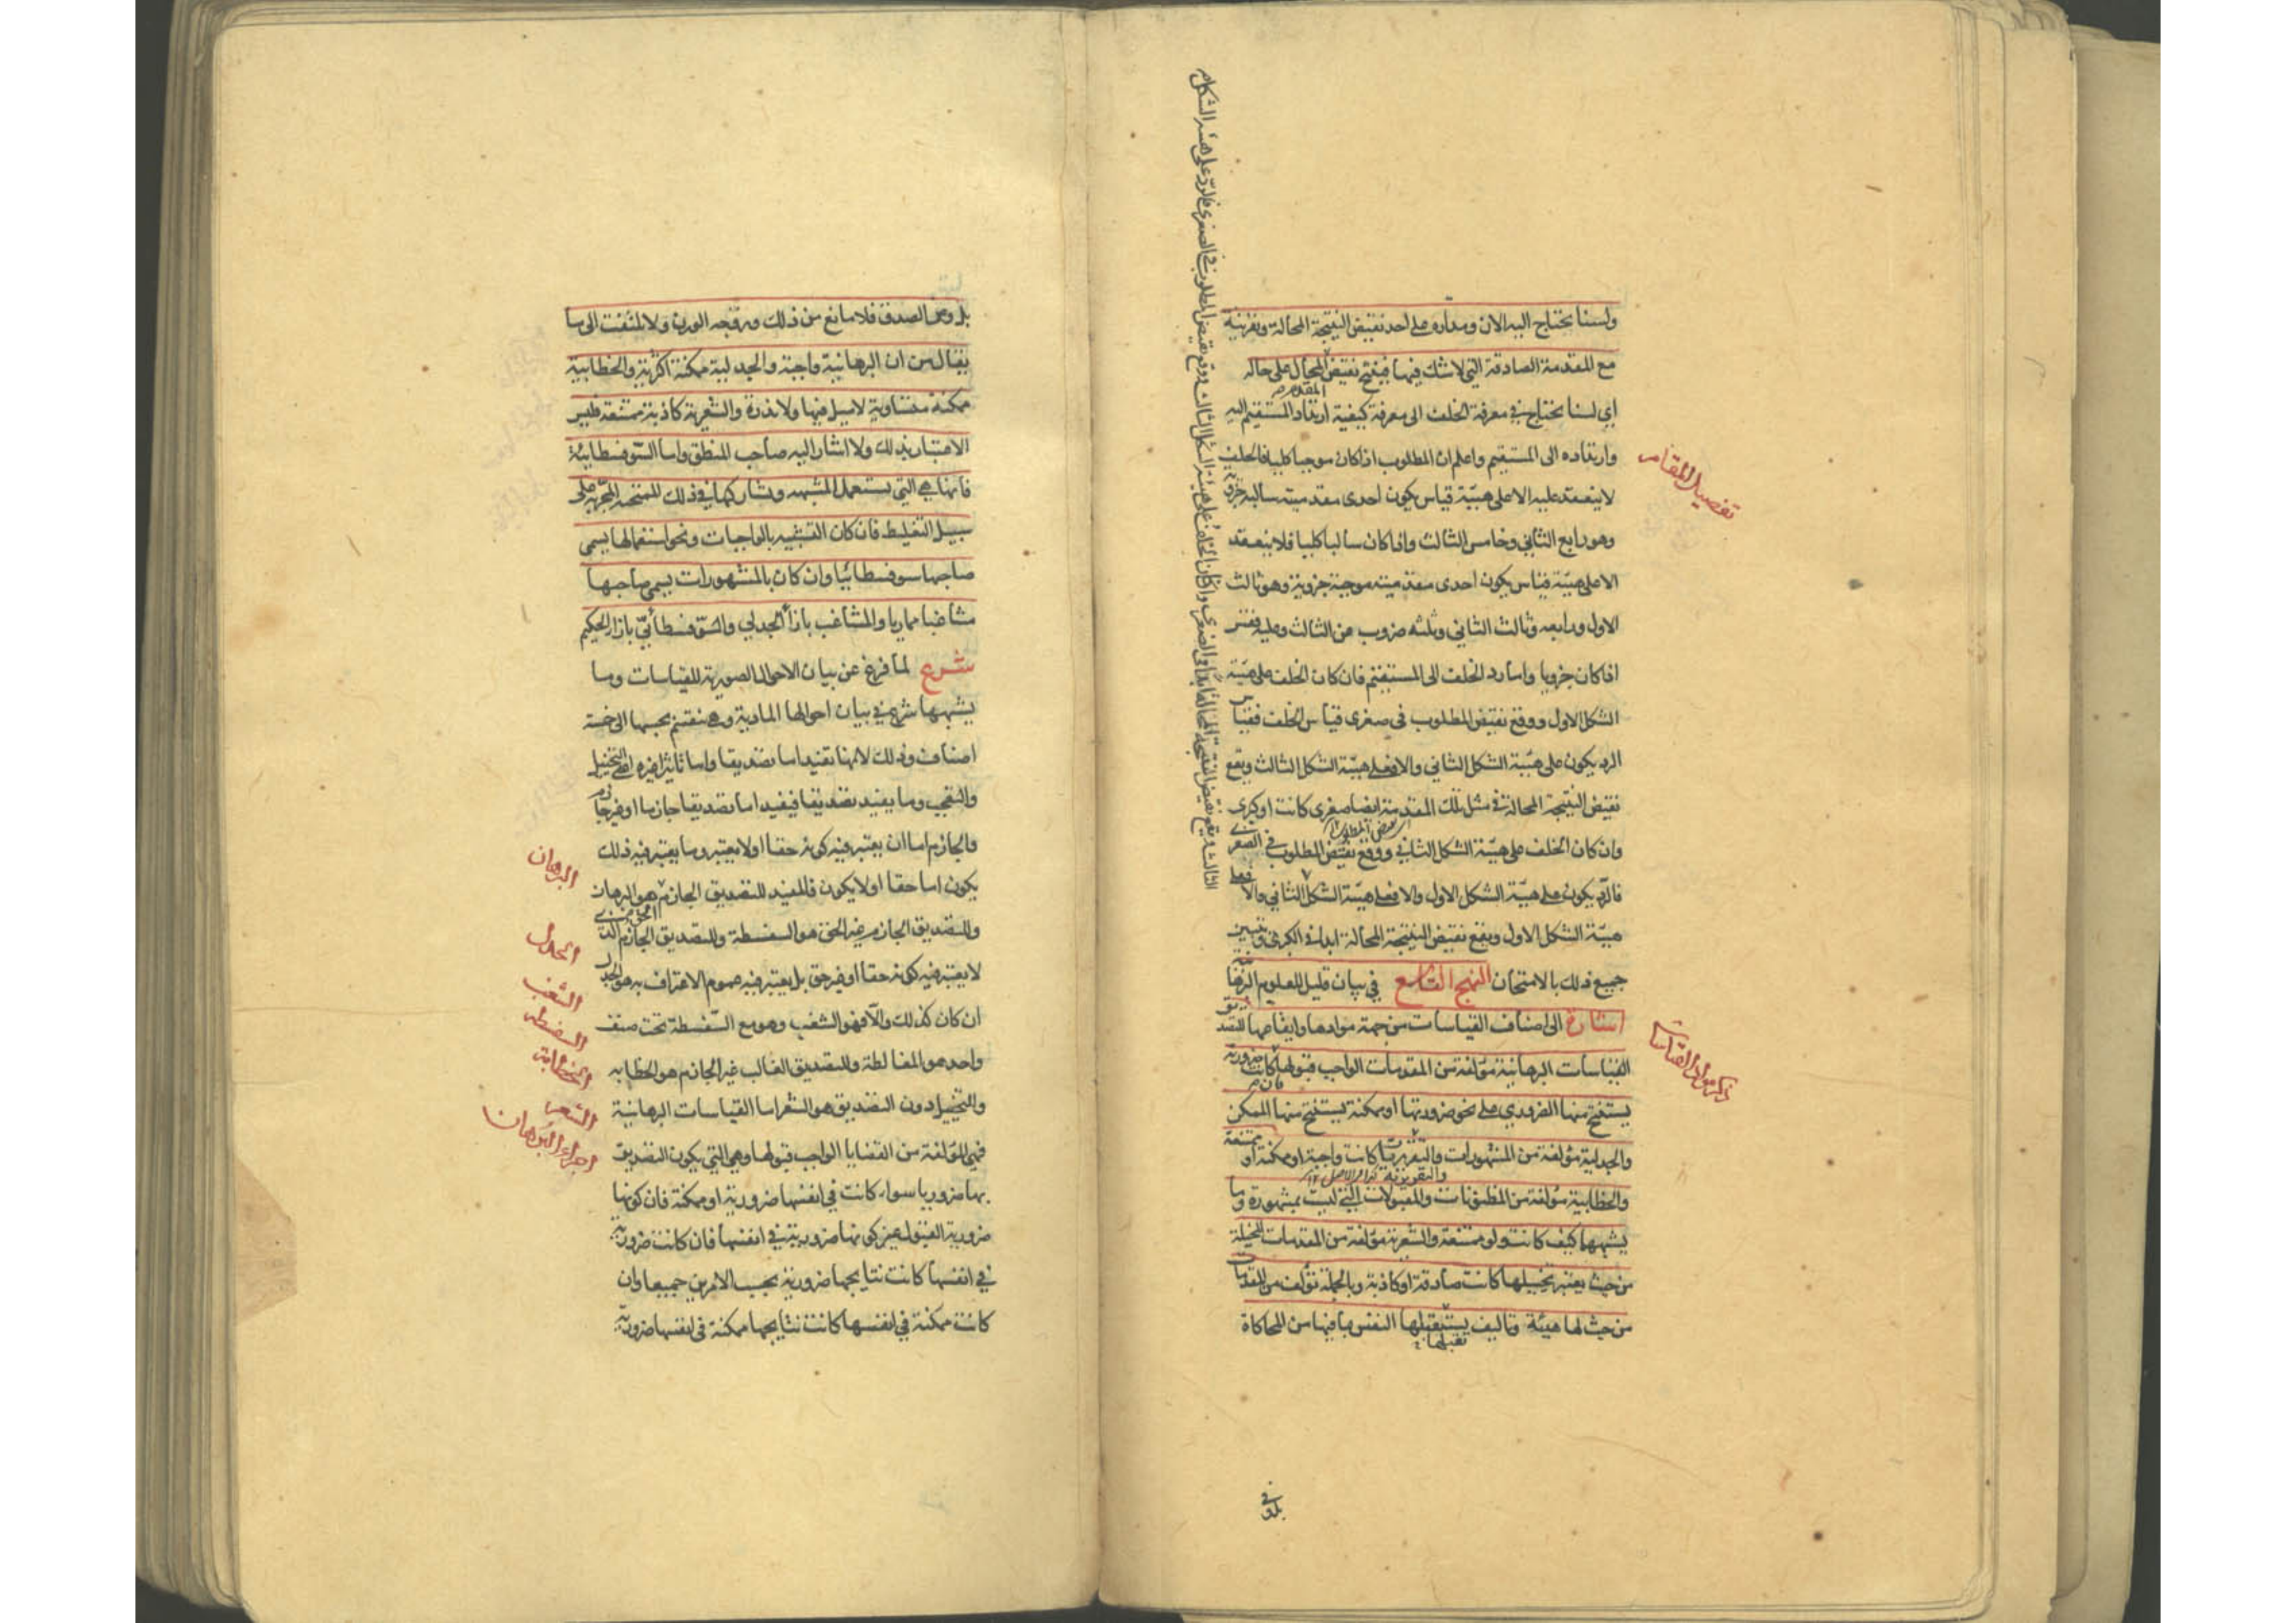 ولسنا نحتاج اليه الان ومداره على اخذ نقيض النتيجة المحالة وتقرينه
مع المقدمة الصادقة التي لا شك فيها فينتج نقيض المحال على حاله
المقدم
اي لسنا نحتاج في معرفة الخلف الى معرفة كيفية ارتداد المستقيم اليه
وارتداده الى المستقيم واعلم ان المطلوب اذا كان موجبا كليا فالخلف
لا ينعقد عليه الا على هيئة قياس يكون احدى مقدمتيه سالبة جزوية
وهو رابع الثاني وخامس الثالث واذا كان سالبا كليا فلا ينعقد
الا على هيئة قياس يكون احدى مقدمتيه موجبة جزوية وهو ثالث
الاول ورابعه وثالث الثاني وثلثه ضروب من الثالث وعليه فقس
اذا كان جزويا واما رد الخلف الى المستقيم فان كان الخلف على هيئة
الشكل الاول ووقع نقيض المطلوب في صغرى قياس الخلف فقياس
الرد يكون على هيئة الشكل الثاني والا فعلى هيئة الشكل الثالث ويقع
نقيض النتيجة المحالة في مثل تلك المقدمة ايضا صغرى كانت او كبرى
وان كان الخلف على هيئة الشكل الثاني ووقع نقيض المطلوب في الصغرى
فالرد يكون على هيئة الشكل الاول والا فعلى هيئة الشكل الثاني والا فعلى
هيئة الشكل الاول ويقع نقيض النتيجة المحالة ابدا في الكبرى وتبين
جميع ذلك بالامتحان النهج التاسع في بيان قليل للعلوم البرهانية
اشارة الى اصناف القياسات من جهة موادها وايقاعها للتصديق
القياسات البرهانية مؤلفة من المقدمات الواجب قبولها كانت ضرورية
فان
يستنتج منها الضروري على نحو ضرورتها او ممكنة يستنتج منها الممكن
والجدلية مؤلفة من المشهورات والتقريريات كانت واجبة او ممكنة او ممتنعة
والخطابية مؤلفة من المظنونات والمقبولات التي ليست بمشهورة وما
يشبهها كيف كانت ولو ممتنعة والشعرية مؤلفة من المقدمات المخيلة
من حيث يعتبر تخييلها كانت صادقة او كاذبة وبالجملة تؤلف من المقدمات
من حيث لها هيئة وتاليف يستقبلها النفس بما فيها من المحاكاة
تقبلها
تفصيل المقام
ذكر مواد القياسات
بل ومن الصدق فلا مانع من ذلك ويروجه الوزن ولا تلتفت الى ما
يقال من ان البرهانية واجبة والجدلية ممكنة اكثرية والخطابية
ممكنة متساوية لا ميل فيها ولا ندرة والشعرية كاذبة ممتنعة فليس
الاعتبار بذلك ولا اشار اليه صاحب المنطق واما السوفسطائية
فانها هي التي تستعمل المشبهه وتشاركها في ذلك الممتحنه المجربة على
سبيل التغليط فان كان التشبيه بالواجبات ونحو استعمالها يسمى
صاحبها سوفسطائيا وان كان بالمشهورات يسمى صاحبها
مشاغبا مماريا والمشاغب بازاء الجدلي والسوفسطائي بازاء الحكيم
شرح لما فرغ عن بيان الاحوال الصورية للقياسات وما
يشبهها شرع في بيان احوالها المادية وهي تنقسم بحسبها الى خمسة
اصناف وذلك لانها تفيد اما تصديقا واما تاثيرا غيره اعني التخييل
والتعجب وما يفيد تصديقا فيفيد اما تصديقا جازما او غير جازم
والجازم اما ان يعتبر فيه كونه حقا او لا يعتبر وما يعتبر فيه ذلك
يكون اما حقا او لا يكون فالمفيد للتصديق الجازم هو البرهان
وللتصديق الجازم غير الحق هو السفسطة وللتصديق الجازم الذي
لا يعتبر فيه كونه حقا او غير حق بل يعتبر فيه عموم الاعتراف به هو الجدل
ان كان كذلك والا فهو الشغب وهو مع السفسطة تحت صنف
واحد هو المغالطة وللتصديق الغالب غير الجازم هو الخطابه
وللتخييل دون التصديق هو الشعر اما القياسات البرهانية
فهي المؤلفة من القضايا الواجب قبولها وهي التي يكون التصديق
بها ضروريا سواء كانت في انفسها ضرورية او ممكنة فان كونها
ضرورية القبول غير كونها ضرورية في انفسها فان كانت ضرورية
في انفسها كانت نتايجها ضرورية بحسب الامرين جميعا وان
كانت ممكنة في انفسها كانت نتايجها ممكنة في انفسها ضرورية
البرهان
الجدل
الشغب
السفسطه
الخطابة
الشعر
اجزاء البرهان